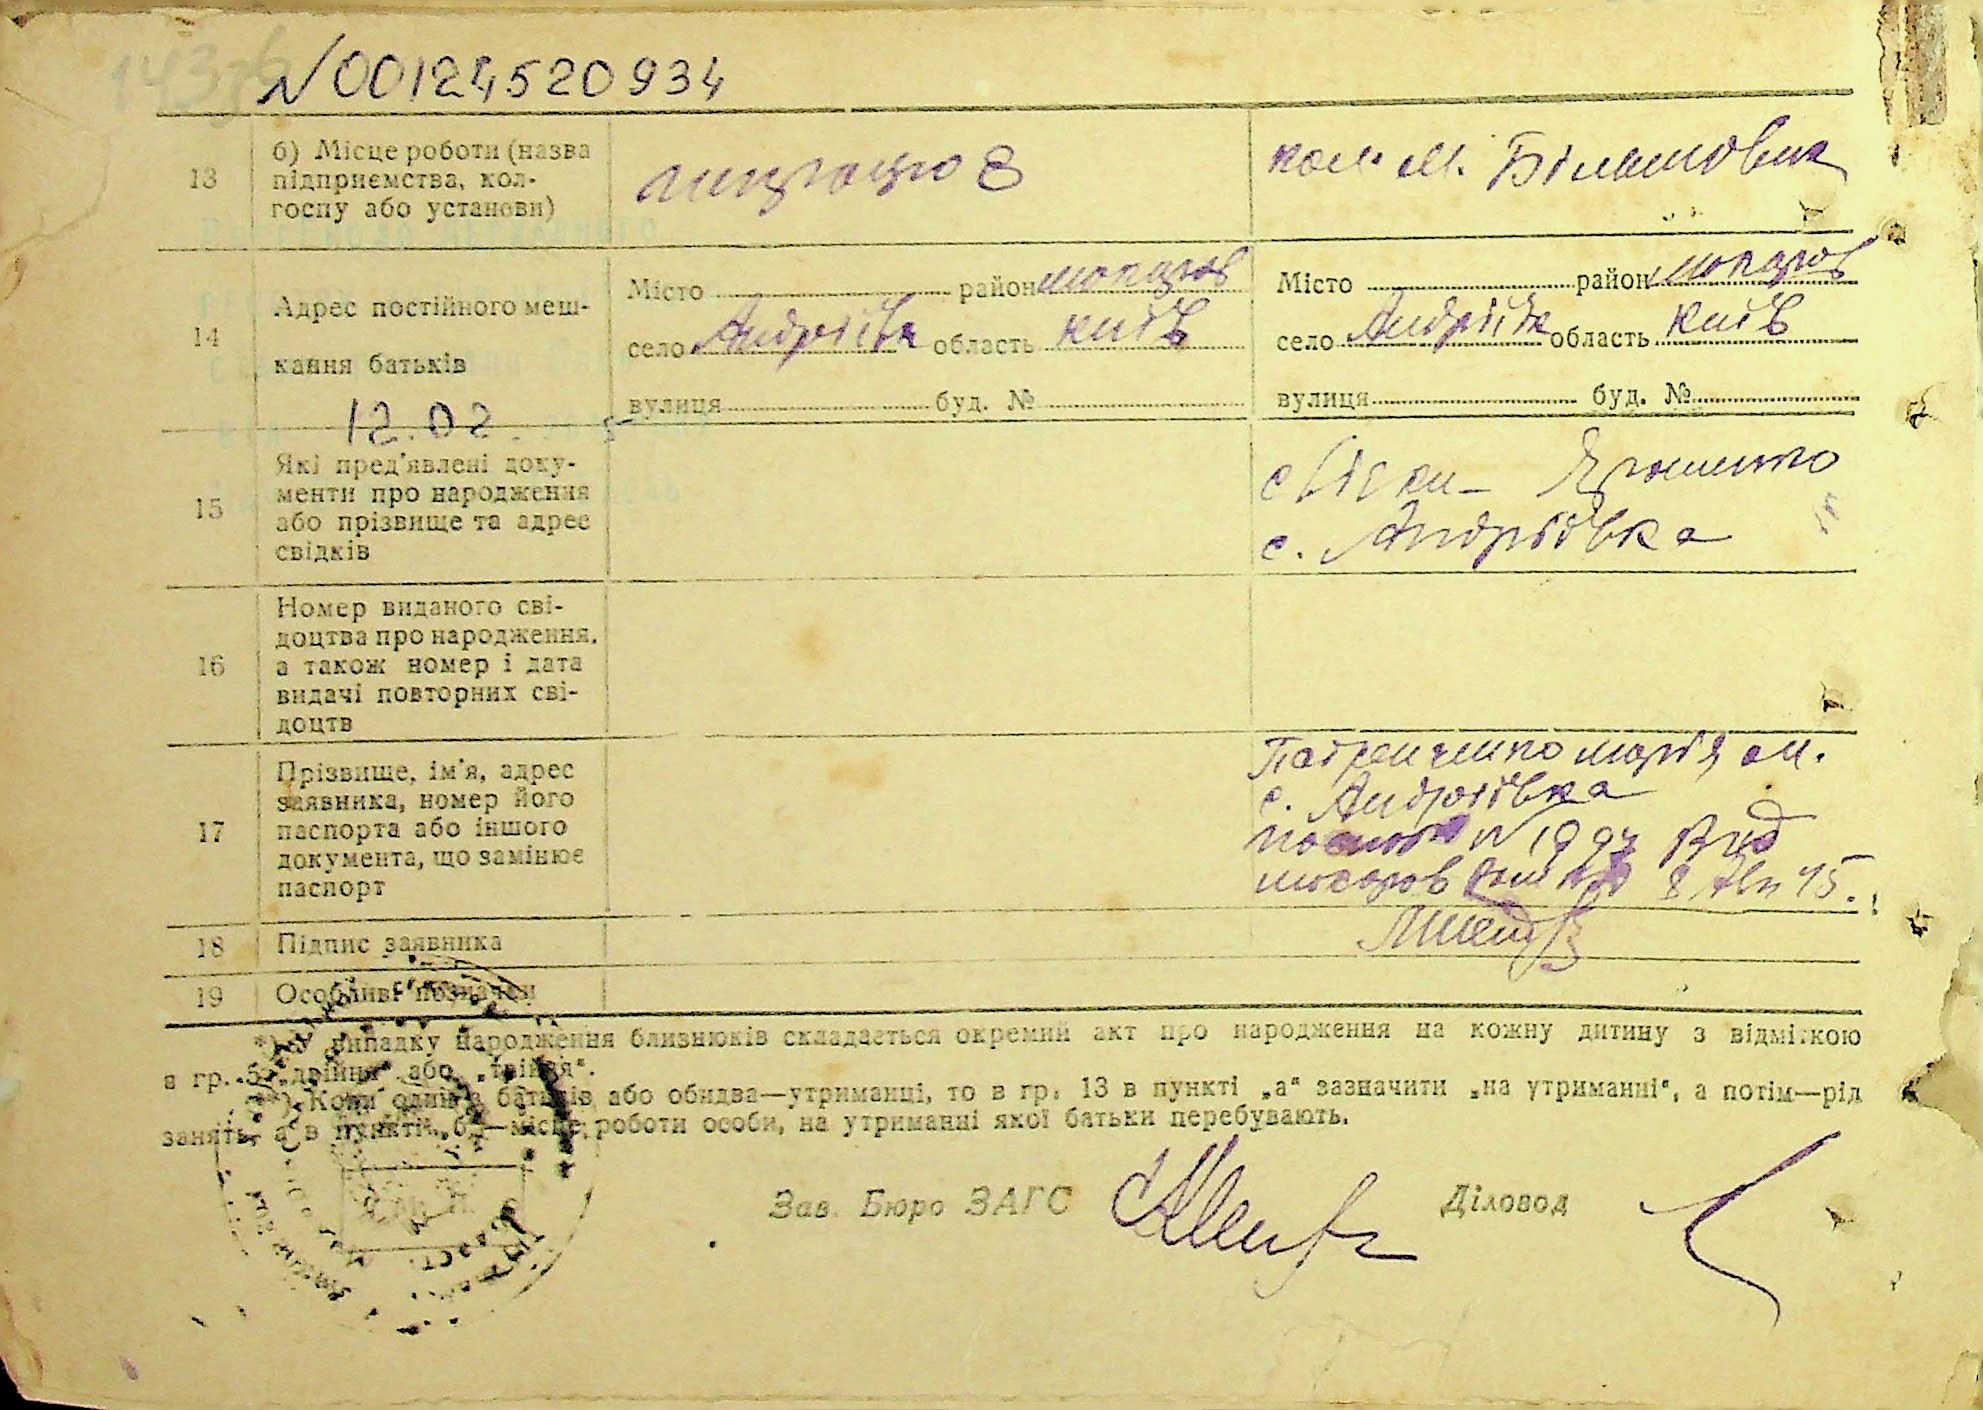 N00124520934
13
б) Місце роботи (назва
підприємства, кол-
госпу або установи)
кол. м. Більшовик
14
Адрес постійного меш-
кання батьків
Місто район Макаров
село Андріївк область Київ
вулиця буд. №
Місто район Макаров
село Андріївк область Київ
вулиця буд. №
12.02.
15
Які пред'явлені доку-
менти про народження
або прізвище та адрес
свідків
свідки –
с. Андріївка
16
Номер виданого сві-
доцтва про народження,
а також номер і дата
видачі повторних сві-
доцтв
17
Прізвище, ім'я, адрес
заявника, номер його
паспорта або іншого
документа, що замінює
паспорт
марія м.
с. Андріївка
N 1994 Вид
макаров 8 45.
18
Підпис заявника
19
Особливі позначки
*) У випадку народження близнюків складається окремий акт про народження на кожну дитину з відміткою
в гр. 5 „двійня" або „трійня".
*) Коли один з батьків або обидва—утриманці, то в гр. 13 в пункті „а" зазначити „на утриманні", а потім—рід
занять, а в пункті „б"—місце роботи особи, на утриманні якої батьки перебувають.
Зав. Бюро ЗАГС Діловод